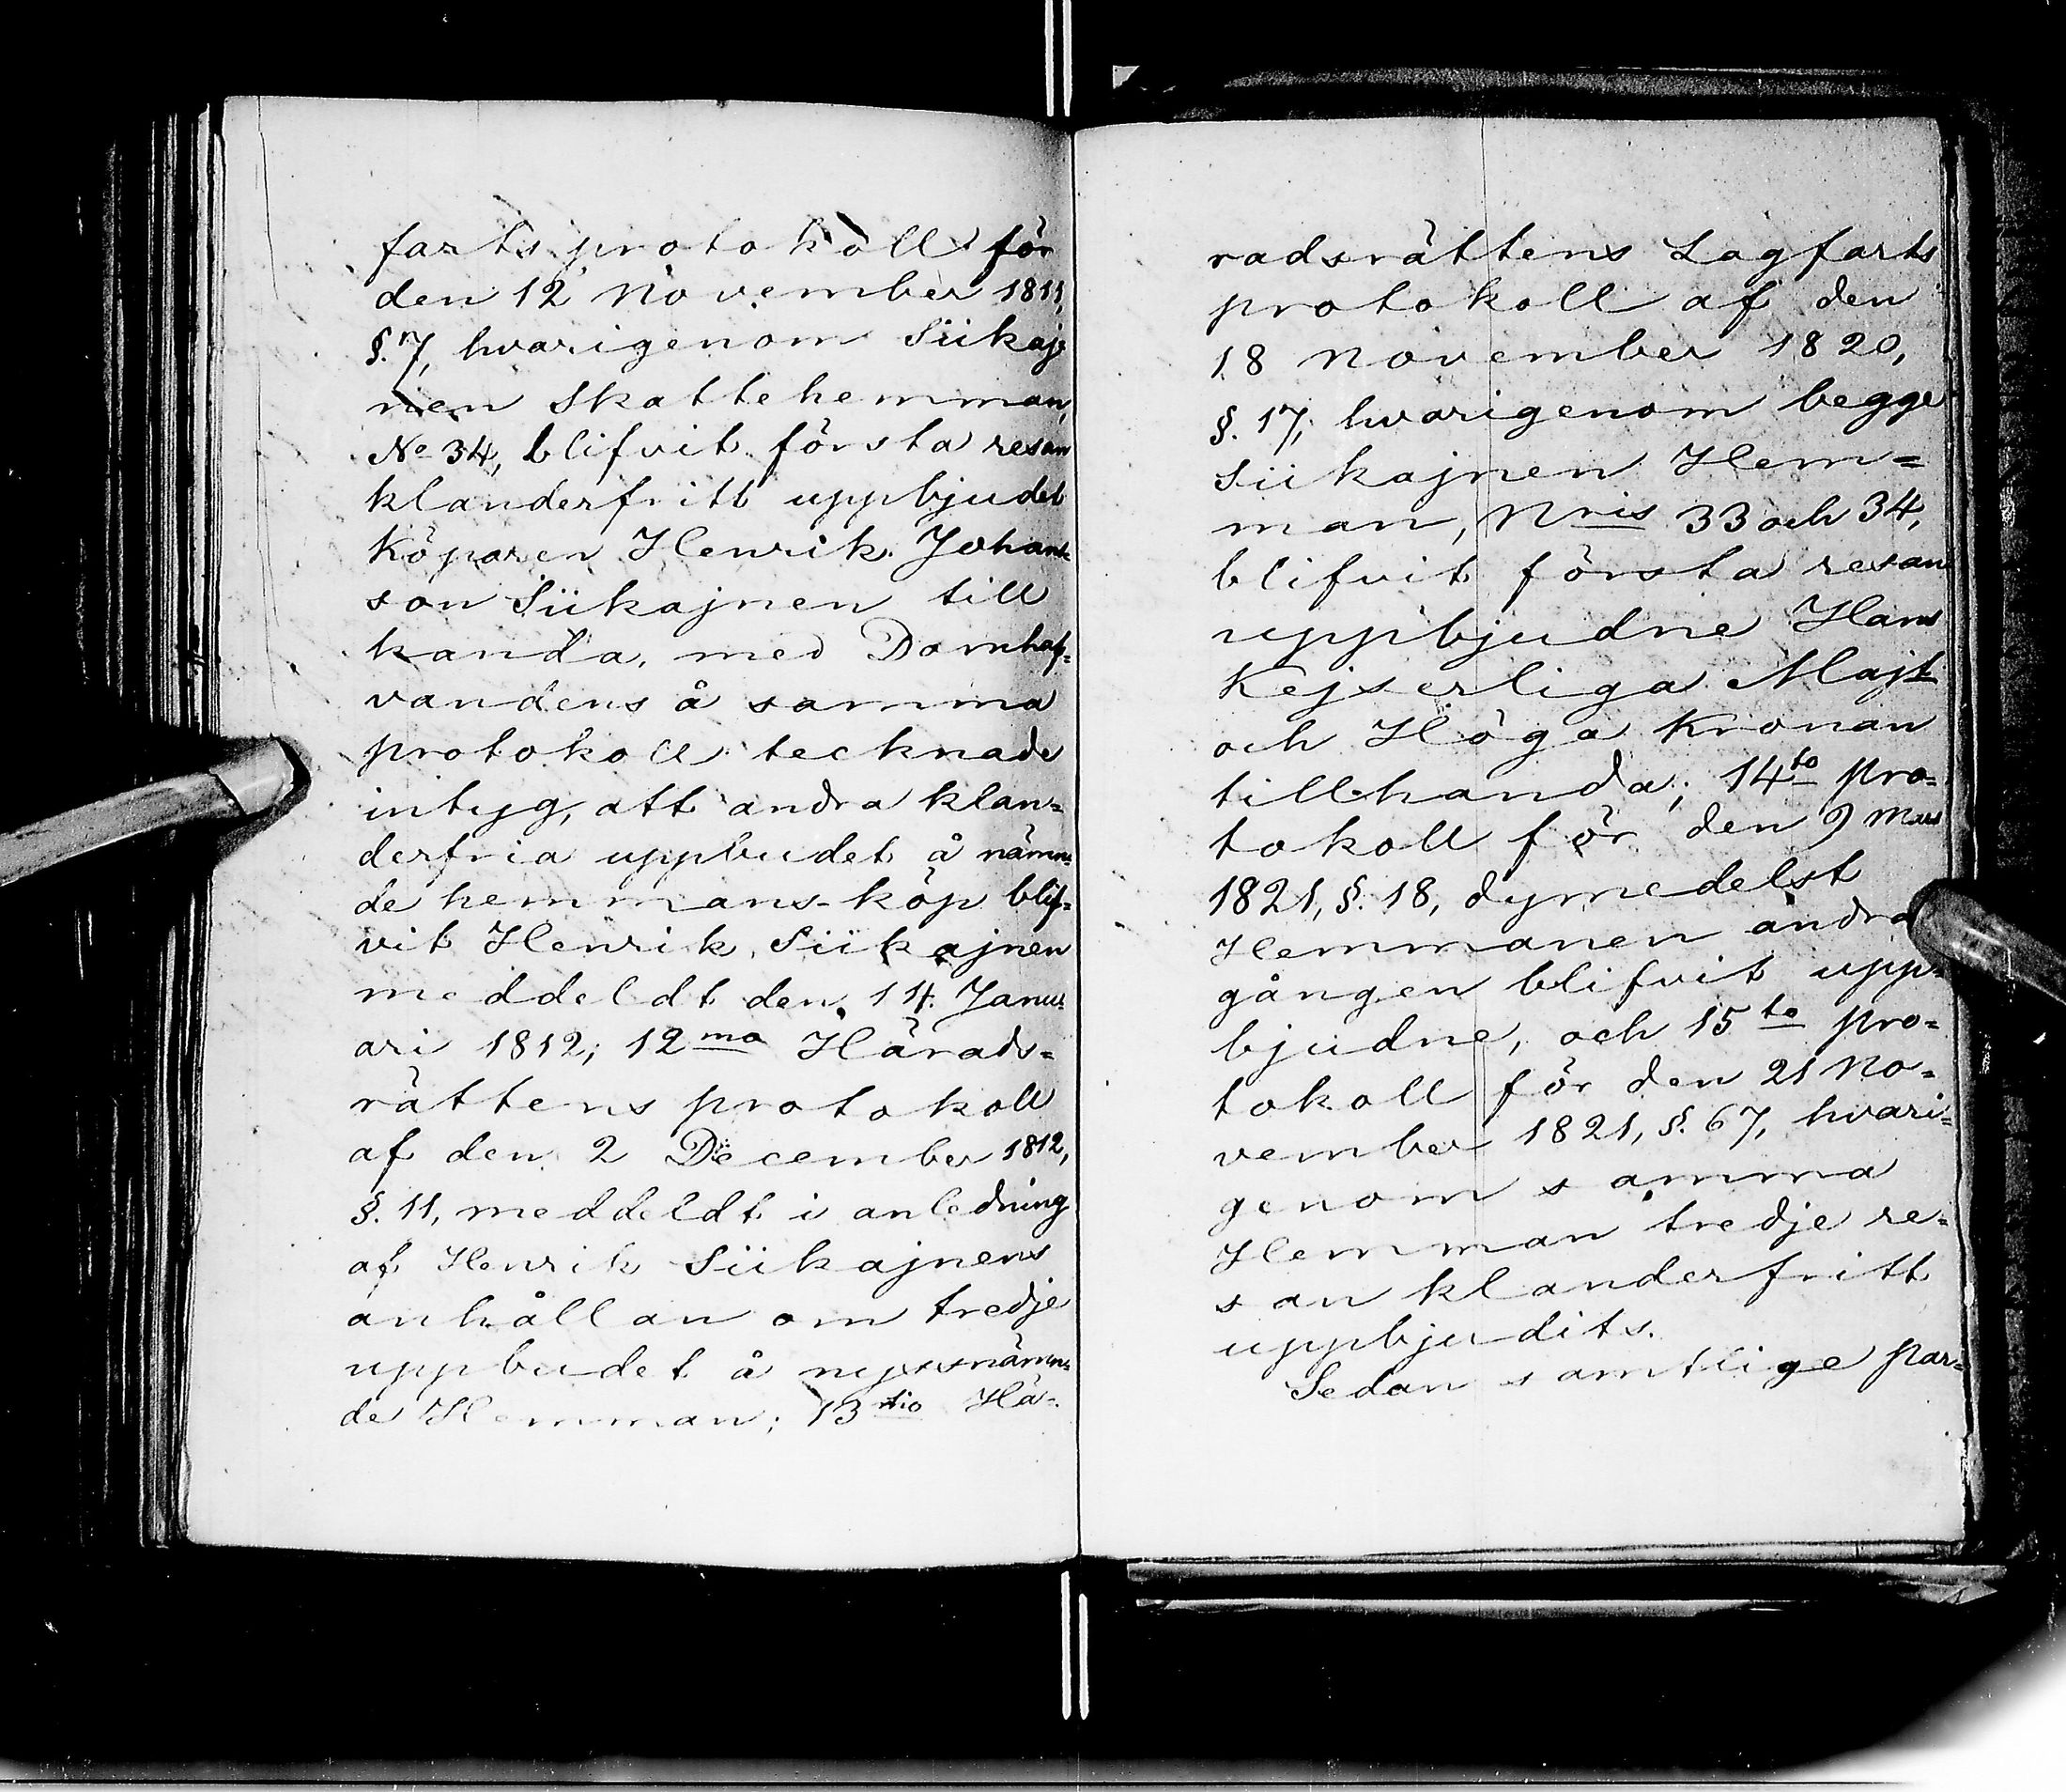 farts protokoll för
den 12 November 1811,
§. 7, hvarigenom Siikaj=
nen Skattehemman,
No 34, blifvit första resan
klanderfritt uppbjudet
Köparen Henrik Johans=
son Siikajnen till
handa, med Domhaf=
vandens å samma
protokoll tecknade
intyg, att andra klan=
derfria uppbudet å nämn=
de hemmans-köp blif=
vit Henrik Siikajnen
meddeldt den 14 Janu=
ari 1812; 12mo Härads=
rättens protokoll
af den 2 December 1812,
§. 11, meddeldt i anledning
af Henrik Siikajnens
anhållan om tredje
uppbudet å nyssnämn=
de Hemman; 13tio Hä=
radsrättens Lagfarts
protokoll af den
18 November 1820,
§. 17, hvarigenom begge
Siikajnen Hem=
man, Nris 33 och 34,
blifvit första resan
uppbjudne Hans
Kejserliga Majt
och Höga Kronan
tillhanda; 14to pro=
tokoll för den 9 Mars
1821, §. 18, dymedelst
Hemmanen andra
gången blifvit upp=
bjudne, och 15to pro=
tokoll för den 21 No=
vember 1821, §. 67, hvari=
genom samma
Hemman tredje re=
san klanderfritt
uppbjudits.
Sedan samtlige par=